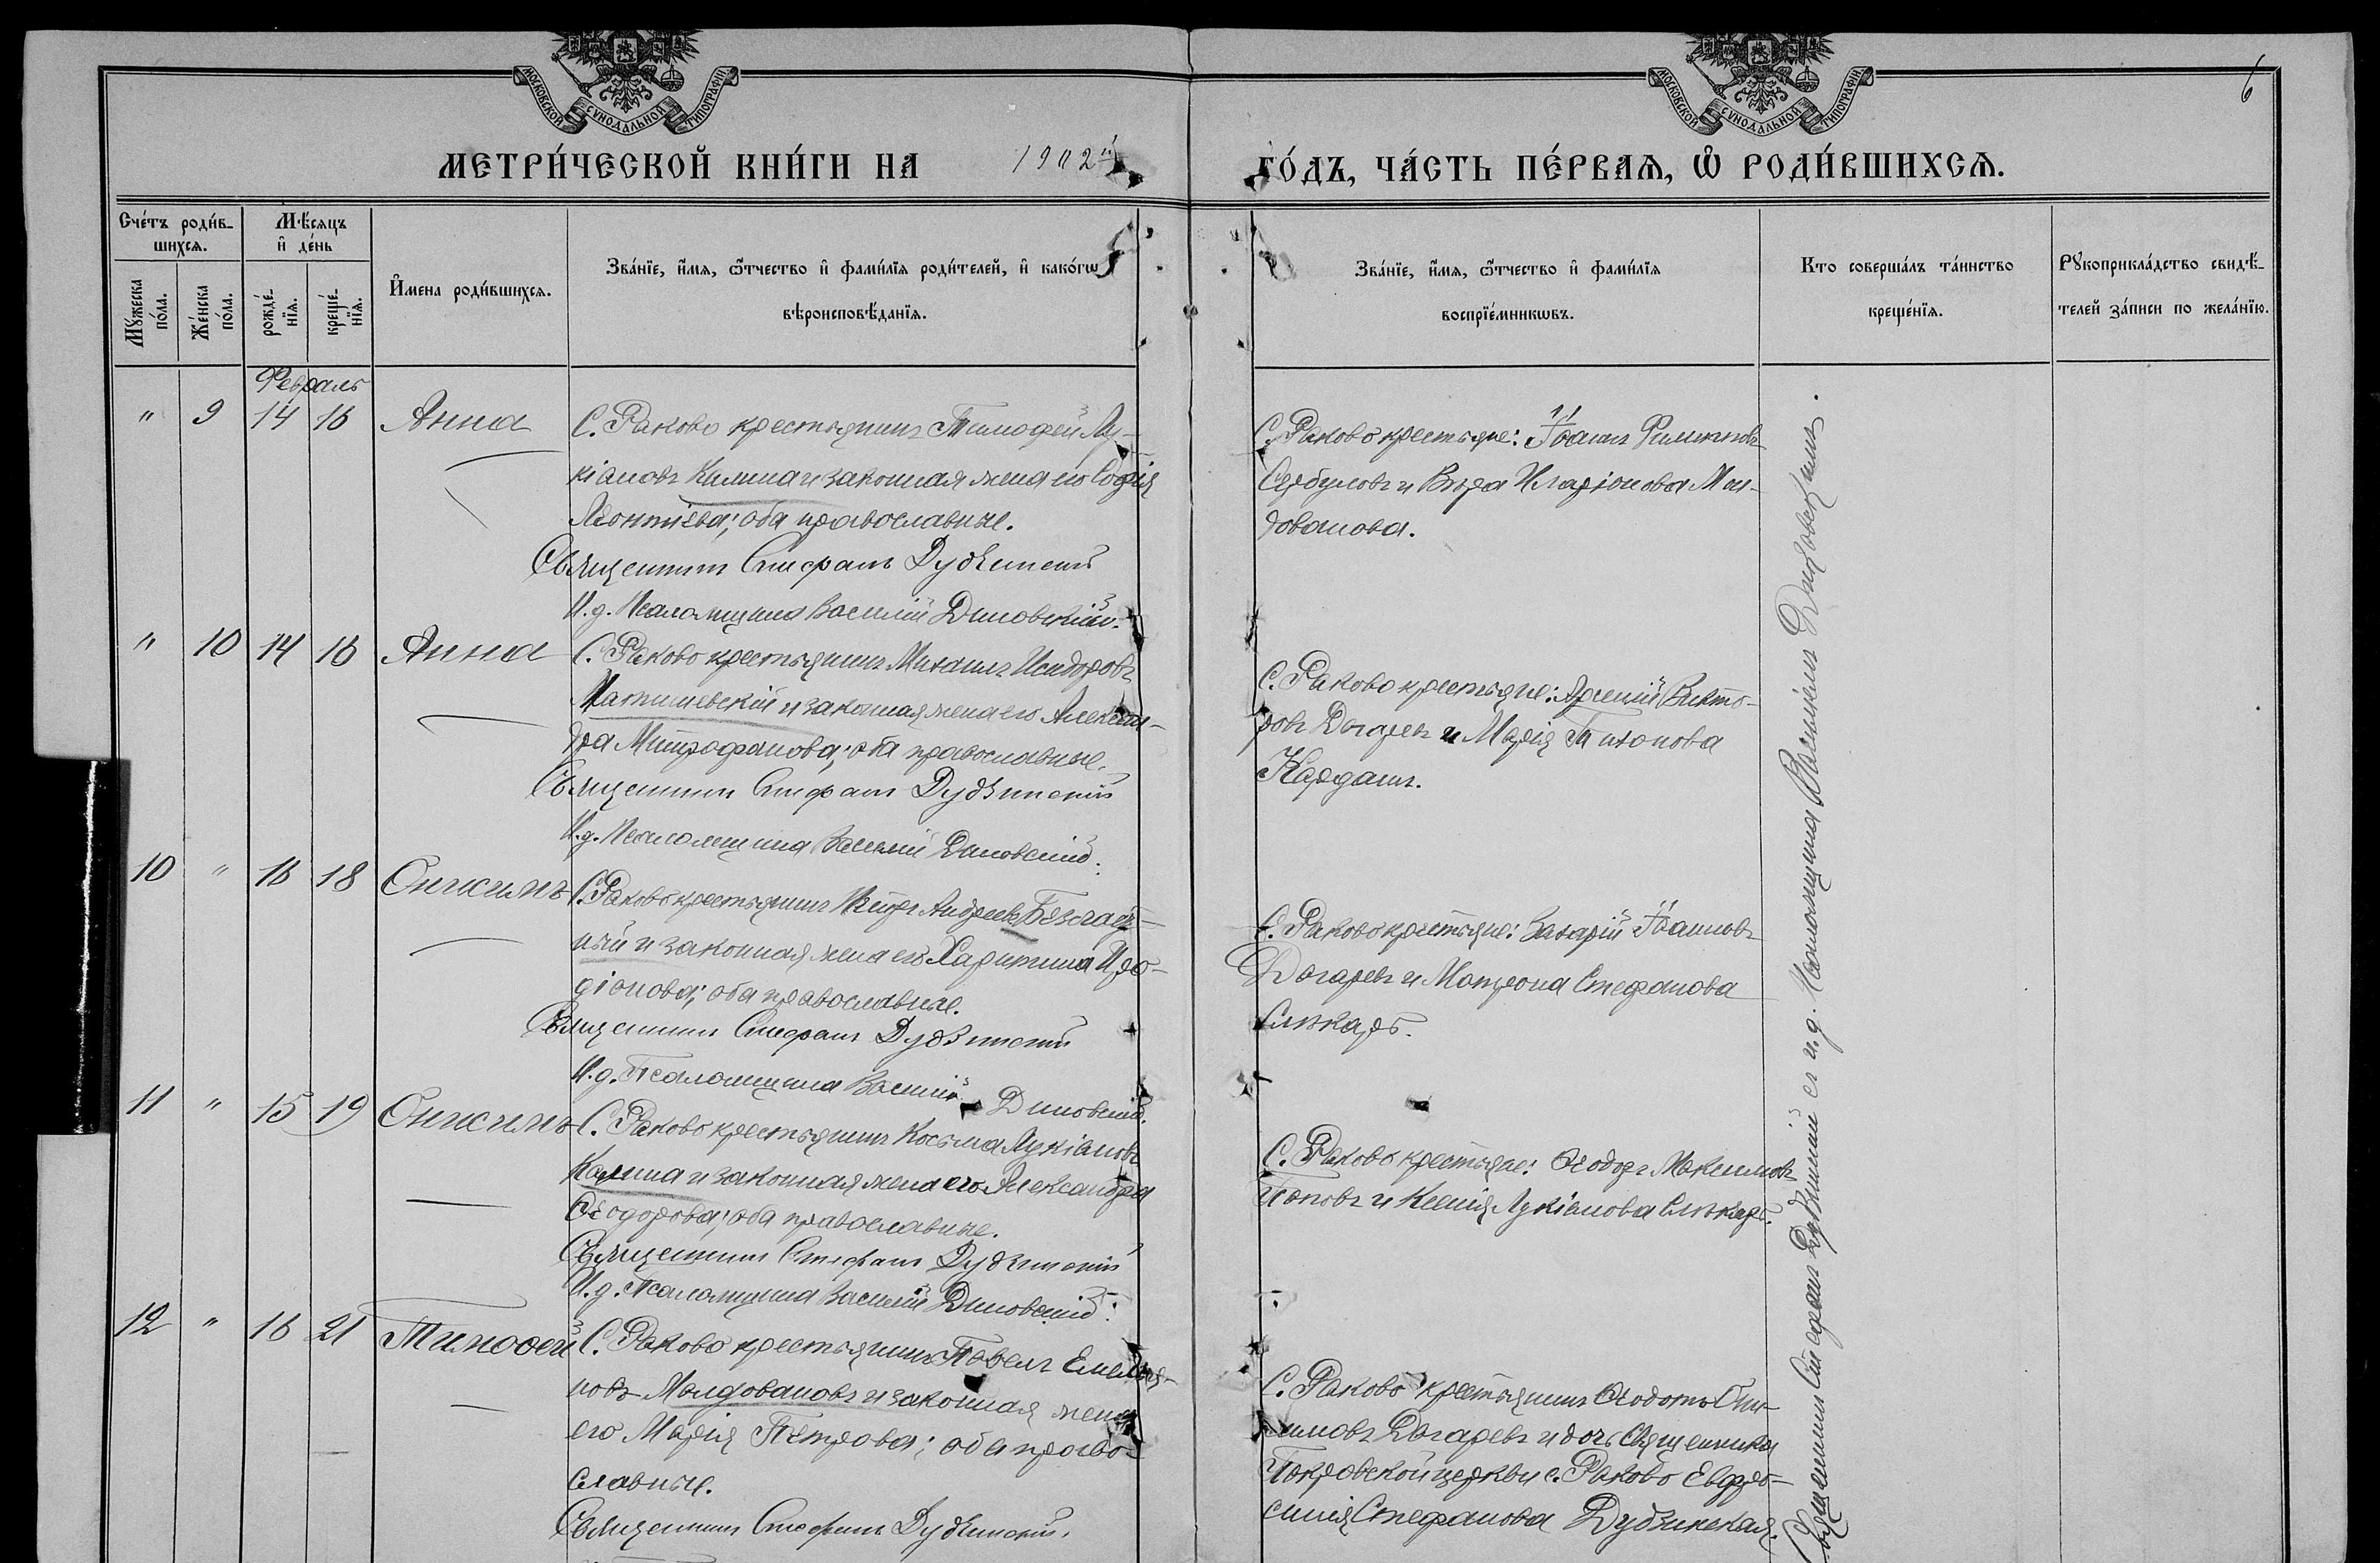 МОСКОВСКОЙ СѴНОДАЛЬНОЙ ТИПОГРАФІИ
МОСКОВСКОЙ СѴНОДАЛЬНОЙ ТИПОГРАФІИ
6
МЕТРИ́ЧЕСКОЙ КНИ́ГИ НА 1902й
ГО́ДЪ, ЧА́СТЬ ПЕ́РВАѦ, Ѽ РОДИ́ВШИХСѦ.
Сче́тъ роди́в-
шихсѧ.
Мꙋ́жеска
по́ла.
Же́нска
по́ла.
Мѣ́сѧцъ
и҆ де́нь
рожде́-
нїѧ.
креще́-
нїѧ.
И҆мена роди́вшихсѧ.
Зва́нїе, и҆́мѧ, ѻ҆́тчество и҆ фами́лїѧ роди́телей, и҆ како́гѡ
вѣроисповѣ́данїѧ.
Зва́нїе, и҆́мѧ, ѻ҆́тчество и҆ фами́лїѧ
воспрїе́мникѡвъ.
Кто соверша́лъ та́инство
креще́нїѧ.
Рꙋкоприкла́дство свидѣ́-
телей за́писи по жела́нїю.
Февраль
" 9 14 16 Анна
С. Раково крестьянинъ Тимофей Лу-
кіановъ Калина и законная жена его Софія
Леонтіева; оба православные.
Священникъ Стефанъ Дудзинскій
И.д. Псаломщика Василій Дыновскій.
С. Раково крестьяне: Іоаннъ
Сербуловъ и Вѣра Иларіонова Мол-
дованова.
" 10 14 16 Анна
С. Раково крестьянинъ Михаилъ Исидоровъ
Матишевскій и законная жена его Алексан-
дра Митрофанова; оба православные.
Священникъ Стефанъ Дудзинскій
И.д. Псаломщика Василій Дыновскій.
С. Раково крестьяне: Арсеній Викто-
ровъ Догаревъ и Марія Тихонова
Кардашъ.
10 " 16 18 Онисимъ
С. Раково крестьянинъ Петръ Андреевъ
ный и законная жена его Харитина Иро-
діонова; оба православные.
Священникъ Стефанъ Дудзинскій
И.д. Псаломщика Василій Дыновскій.
С. Раково крестьяне: Захарій Іоанновъ
Догаревъ и Матрона Стефанова
Слюкарь.
11 " 15 19 Онисимъ
С. Раково крестьянинъ Косьма Лукіановъ
Калина и законная жена его Александра
Ѳеодорова; оба православные.
Священникъ Стефанъ Дудзинскій
И.д. Псаломщика Василій Дыновскій.
С. Раково крестьяне: Ѳеодоръ Максимовъ
Поповъ и Ксенія Лукіанова Слюкарь.
12 " 16 21 Тимоѳей
С. Раково крестьянинъ Павелъ Емелья-
новъ Молдовановъ и законная жена
его Марія Петрова; оба право-
славные.
Священникъ Стефанъ Дудзинскій.
С. Раково крестьянинъ Ѳеодотъ Они-
симовъ Догаревъ и дочь Священника
Покровской церкви с. Раково Евфро-
синія Стефанова Дудзинская.
Священникъ Стефанъ Дудзинскій съ и.д. Псаломщика Василіемъ Дыновскимъ.